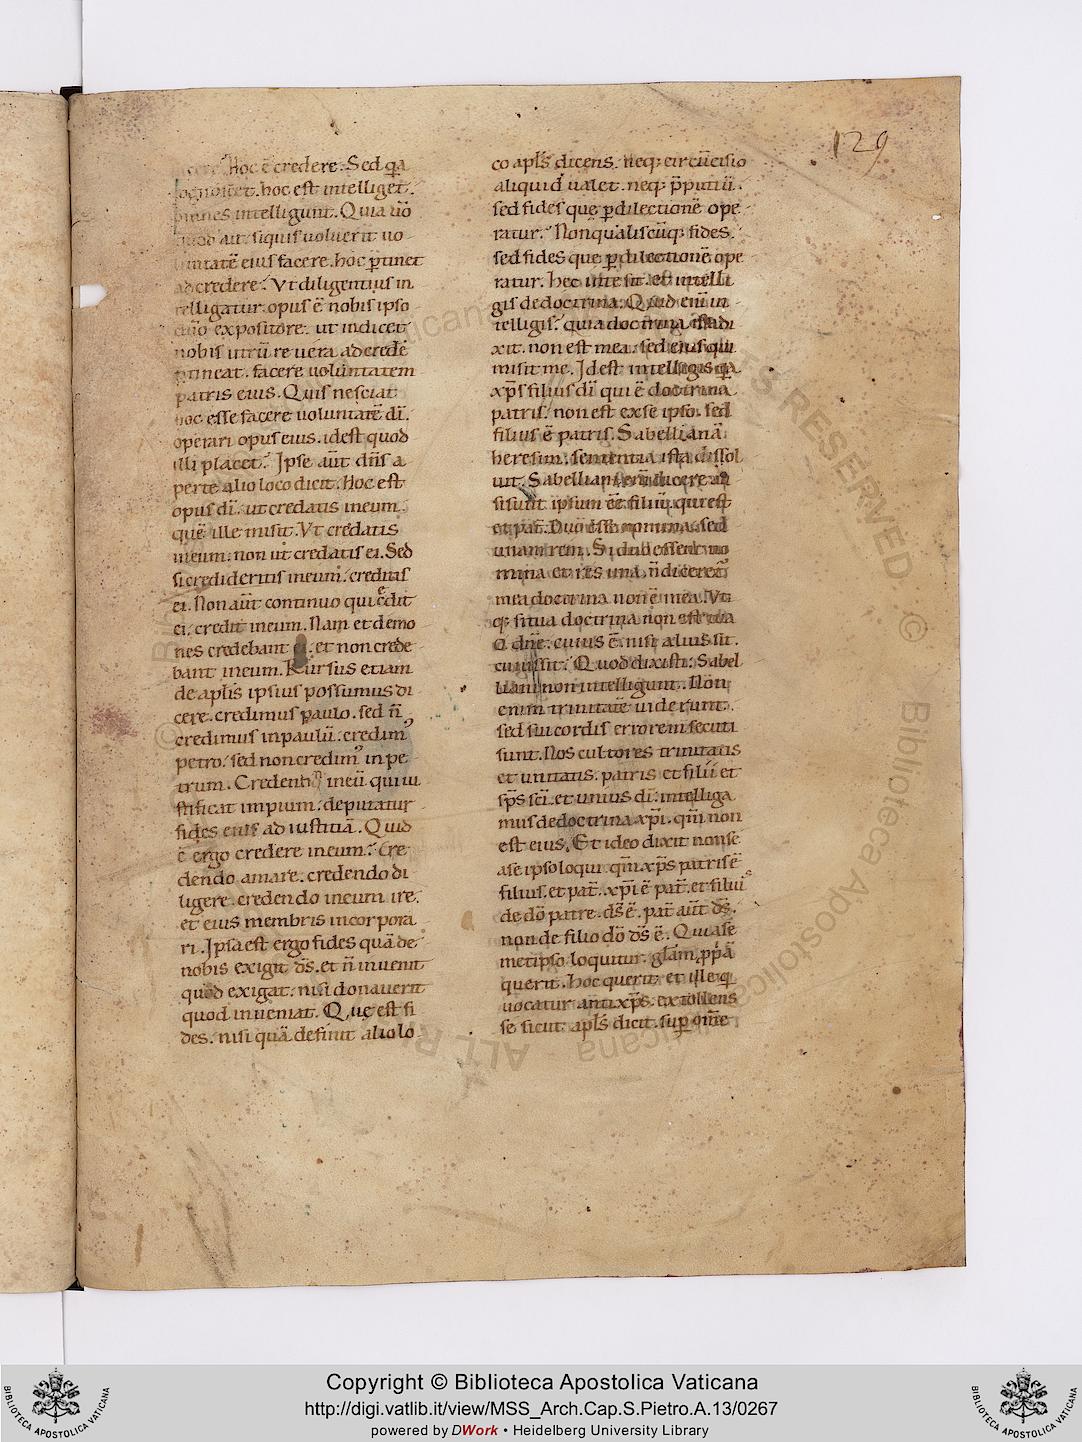 129
Hoc ē credere. Sed q̄a
cognouit. hoc est intelliget.
omnes intelligunt. Quia uō
quod ait siquis uoluerit uo
luntatē eius facere. hoc ꝑtinet
ad credere. Vt diligentius in
telligatur opus ē nobis ipso
dn̄o expositore. ut indicet
nobis utrū reuera ad credē
ꝑtineat. facere uoluntatem
patris eius. Quis nesciat
hoc esse facere uoluntatē dī.
operari opus eius. idest quod
illi placet. Ipse aūt dn̄s a
perte alio loco dicit. Hoc est
opus dī. ut credatis ineum.
quē ille misit. Vt credatis
ineum. non ut credatis ei. Sed
si credideritis ineum. creditis
ei. Non aūt continuo qui cēdit
ei. credit ineum. Nam et demo
nes credebant ei. et non crede
bant ineum. Rursus etiam
de aplīs ipsius possumus di
cere. credimus paulo. sed n̄
credimus inpaulū. credim᾽
petro. sed non credim᾽ in pe
trum. Credenti ineū qui iu
stificat impium. deputatur
fides eius ad iustitiā. Quid
ē ergo credere ineum? Cre
dendo amare. credendo di
ligere. credendo ineum ire.
et eius membris incorpora
ri. Ipsa est ergo fides quā de
nobis exigit d̄s. et n̄ inuenit
quod exigat. nisi donauerit
quod inueniat. Que est fi
des. nisi quā definit alio lo
co apl̄s dicens. neq; circūcisio
aliquid ualet. neq; p̄putiū.
sed fides que ꝑ dilectionē ope
ratur. Non qualiscūq; fides.
sed fides que ꝑ dilectionē ope
ratur. hec inte sit. et intelli
gis de doctrina. Quid eni in
telligis? quia doctrina ista di
xit. non est mea. sed eius qui
misit me. Idest intellegis q̄a
xp̄s filius dī qui ē doctrina
patris. non est exse ipso. sed
filius ē patris. Sabellianā
heresim. sententia ista dissol
uit. Sabelliani eni dicere au
si sunt ipsum ēē filiū. qui est
et pat̄. Duo esse nomina. sed
unam rem. Si duo essent no
mina et res una. n̄ diceret᾽
mea doctrina non ē mea. Vti
q; si tua doctrina non est tua
o dn̄e. cuius ē. nisi alius sit.
cuius sit? Quod dixisti. Sabel
liani non intelligunt. Non
enim trinitatē uiderunt.
sed sui cordis errorem secuti
sunt. Nos cultores trinitatis
et unitatis. patris et filii et
sp̄s sc̄i. et unius dī. intelliga
mus de doctrina xp̄i. qm̄ non
est eius. Et ideo dixit non se
ase ipso loqui. qm̄ xp̄s patris ē
filius. et pat̄. xp̄i ē pat̄. et filius
de dō patre. d̄s ē. pat̄ aūt d̄s.
non de filio dō d̄s ē. Qui a se
metipso loquitur. gl̄am p̄p̄ā
querit. hoc querit et ille q̄
uocatur antixp̄s. extollens
se sicut apl̄s dicit. suꝑ omne
Copyright © Biblioteca Apostolica Vaticana
http://digi.vatlib.it/view/MSS_Arch.Cap.S.Pietro.A.13/0267
powered by DWork • Heidelberg University Library
BIBLIOTECA APOSTOLICA VATICANA
BIBLIOTECA APOSTOLICA VATICANA